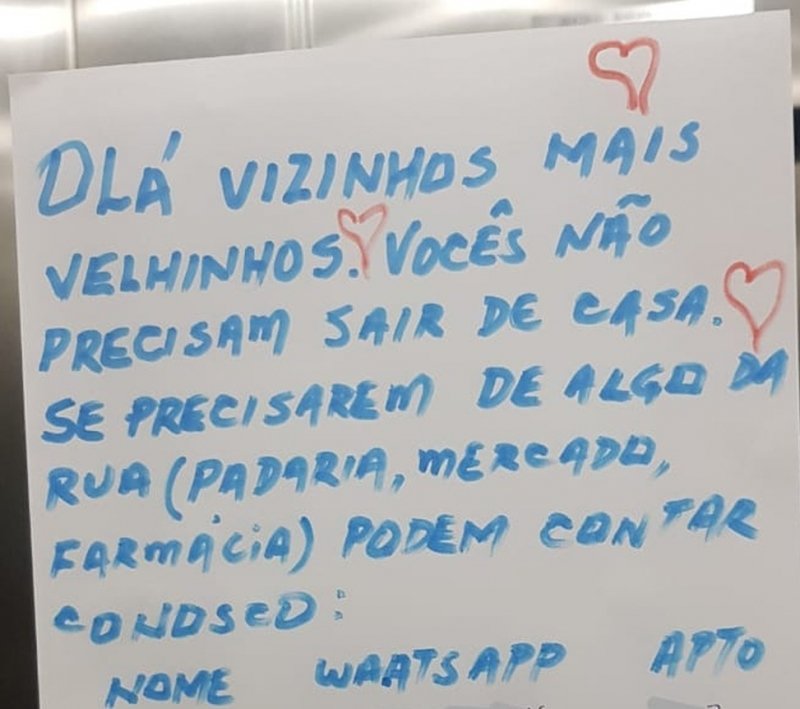 OLÁ VIZINHOS MAIS
VELHINHOS. VOCÊS NÃO
PRECISAM SAIR DE CASA.
SE PRECISAREM DE ALGO DA
RUA (PADARIA, MERCADO,
FARMÁCIA) PODEM CONTAR
CONOSCO:
NOME WAATSAPP APTO